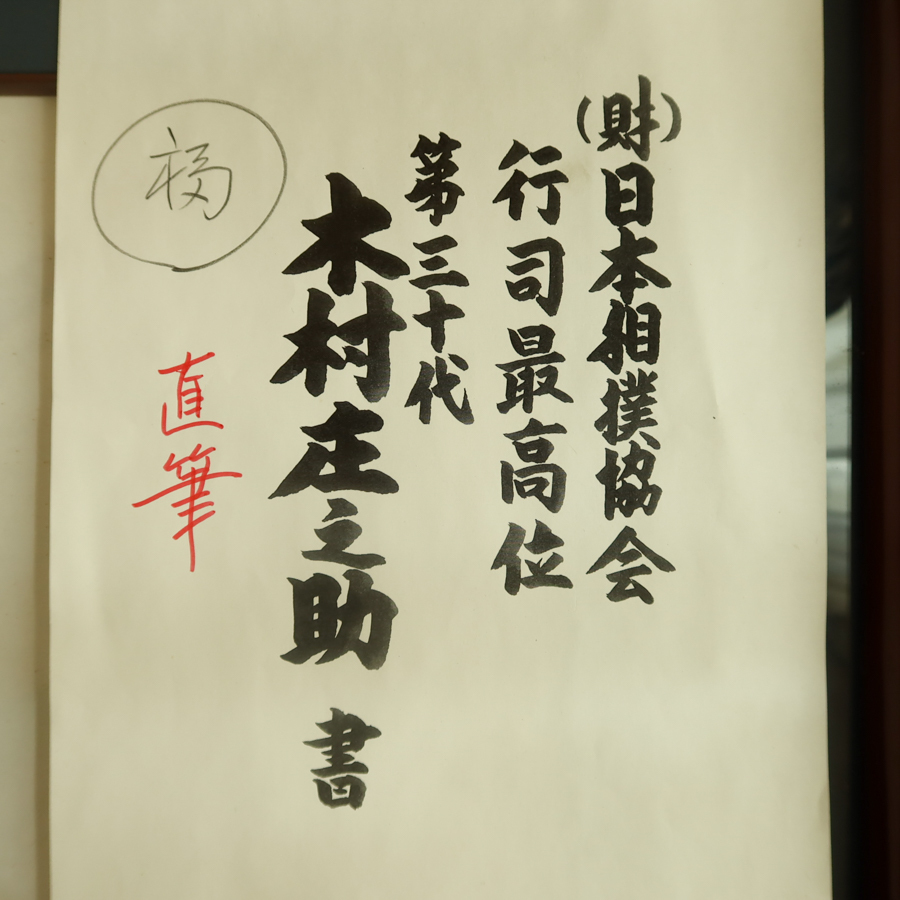 (財)日本相撲協会
行司最高位
第三十代
木村庄之助 書
福
直筆